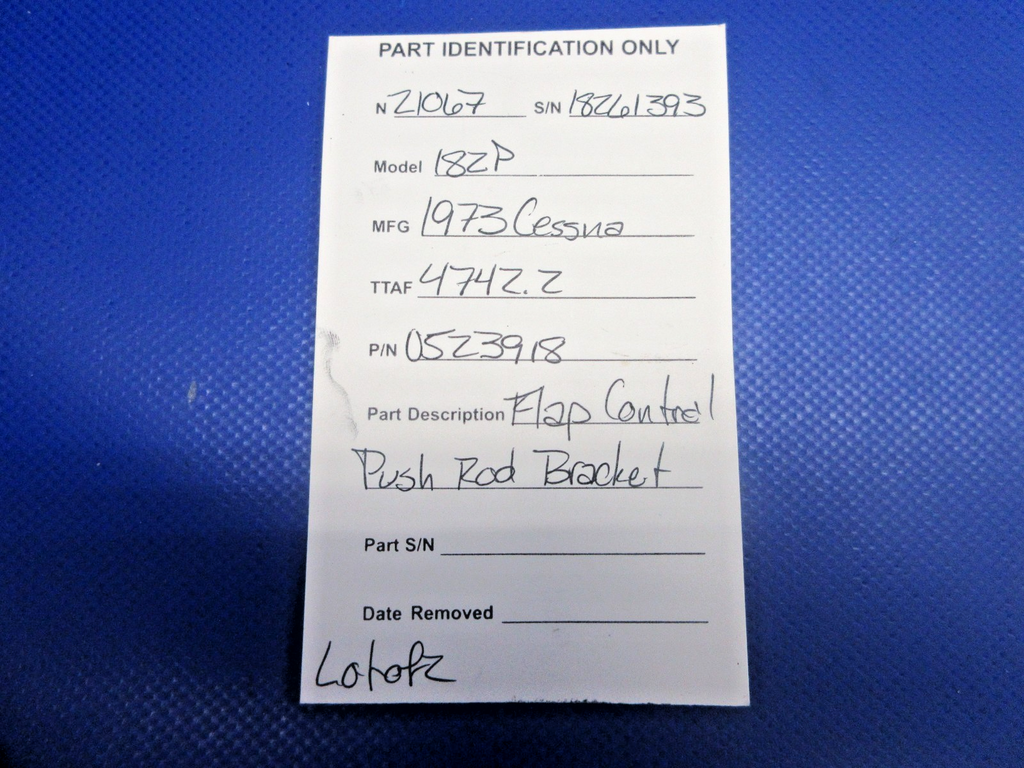 PART IDENTIFICATION ONLY
N 21067 S/N 18261393
Model 182P
MFG 1973 Cessna
TTAF 4742.2
P/N 0523918
Part Description Flap Control
Push Rod Bracket
Part S/N
Date Removed
Lot of 2